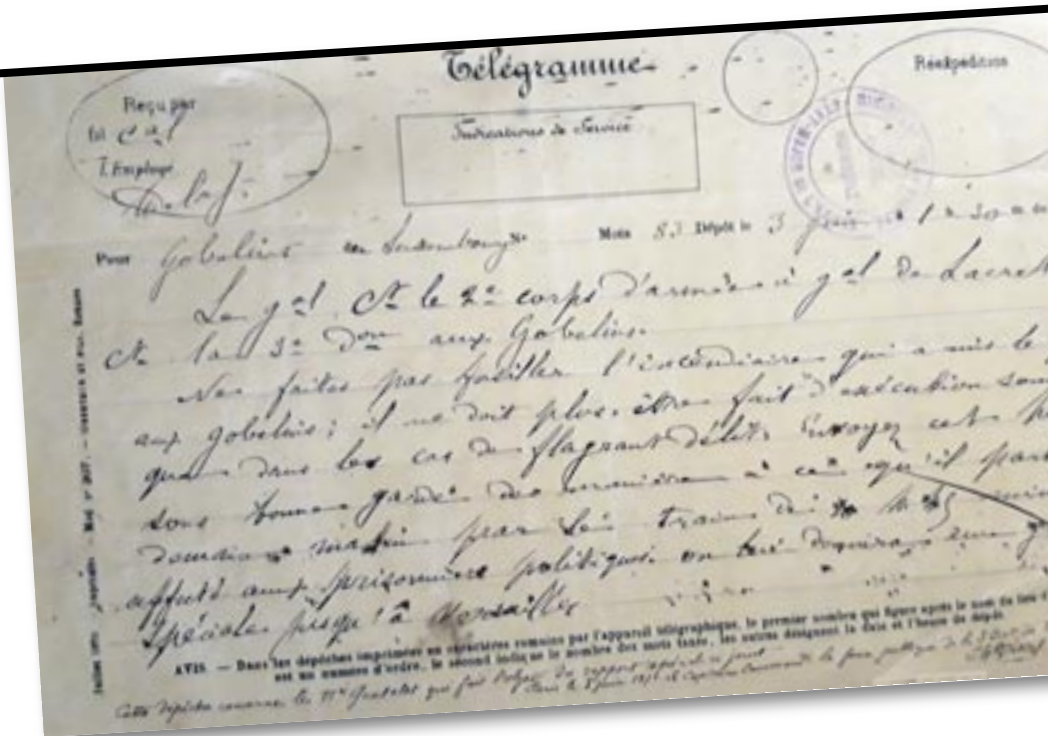 Télégramme
Reçu par
fil Cal
L'Employé
Indications de Service
Réexpédition
Pour Gobelins de Luxembourg No Mots 83 Dépôt le 3 juin à 1 h 30 m
Le gal Ct le 2e corps d'armée à gal de Lacret
Ct la 3e Don aux Gobelins.
Ne faites pas fusiller l'incendiaire qui a mis le
aux gobelins; il ne doit plus être fait d'exécution som
que dans les cas de flagrant délit. Envoyez cet
sous bonne garde de manière à ce qu'il par
demain matin par le train de
affecté aux prisonniers politiques. on lui donnera une g
spéciale jusqu'à Versailles
AVIS. — Dans les dépêches imprimées en caractères romains par l'appareil télégraphique, le premier nombre qui figure après le nom du lieu d'
est un numéro d'ordre, le second indique le nombre des mots taxés, les autres désignent la date et l'heure de dépôt.
Cette dépêche concerne le Mr qui fait l'objet du rapport spécial ci joint
Paris le 8 juin 1871 le Capitaine Commandant la force publique de la 3 Division